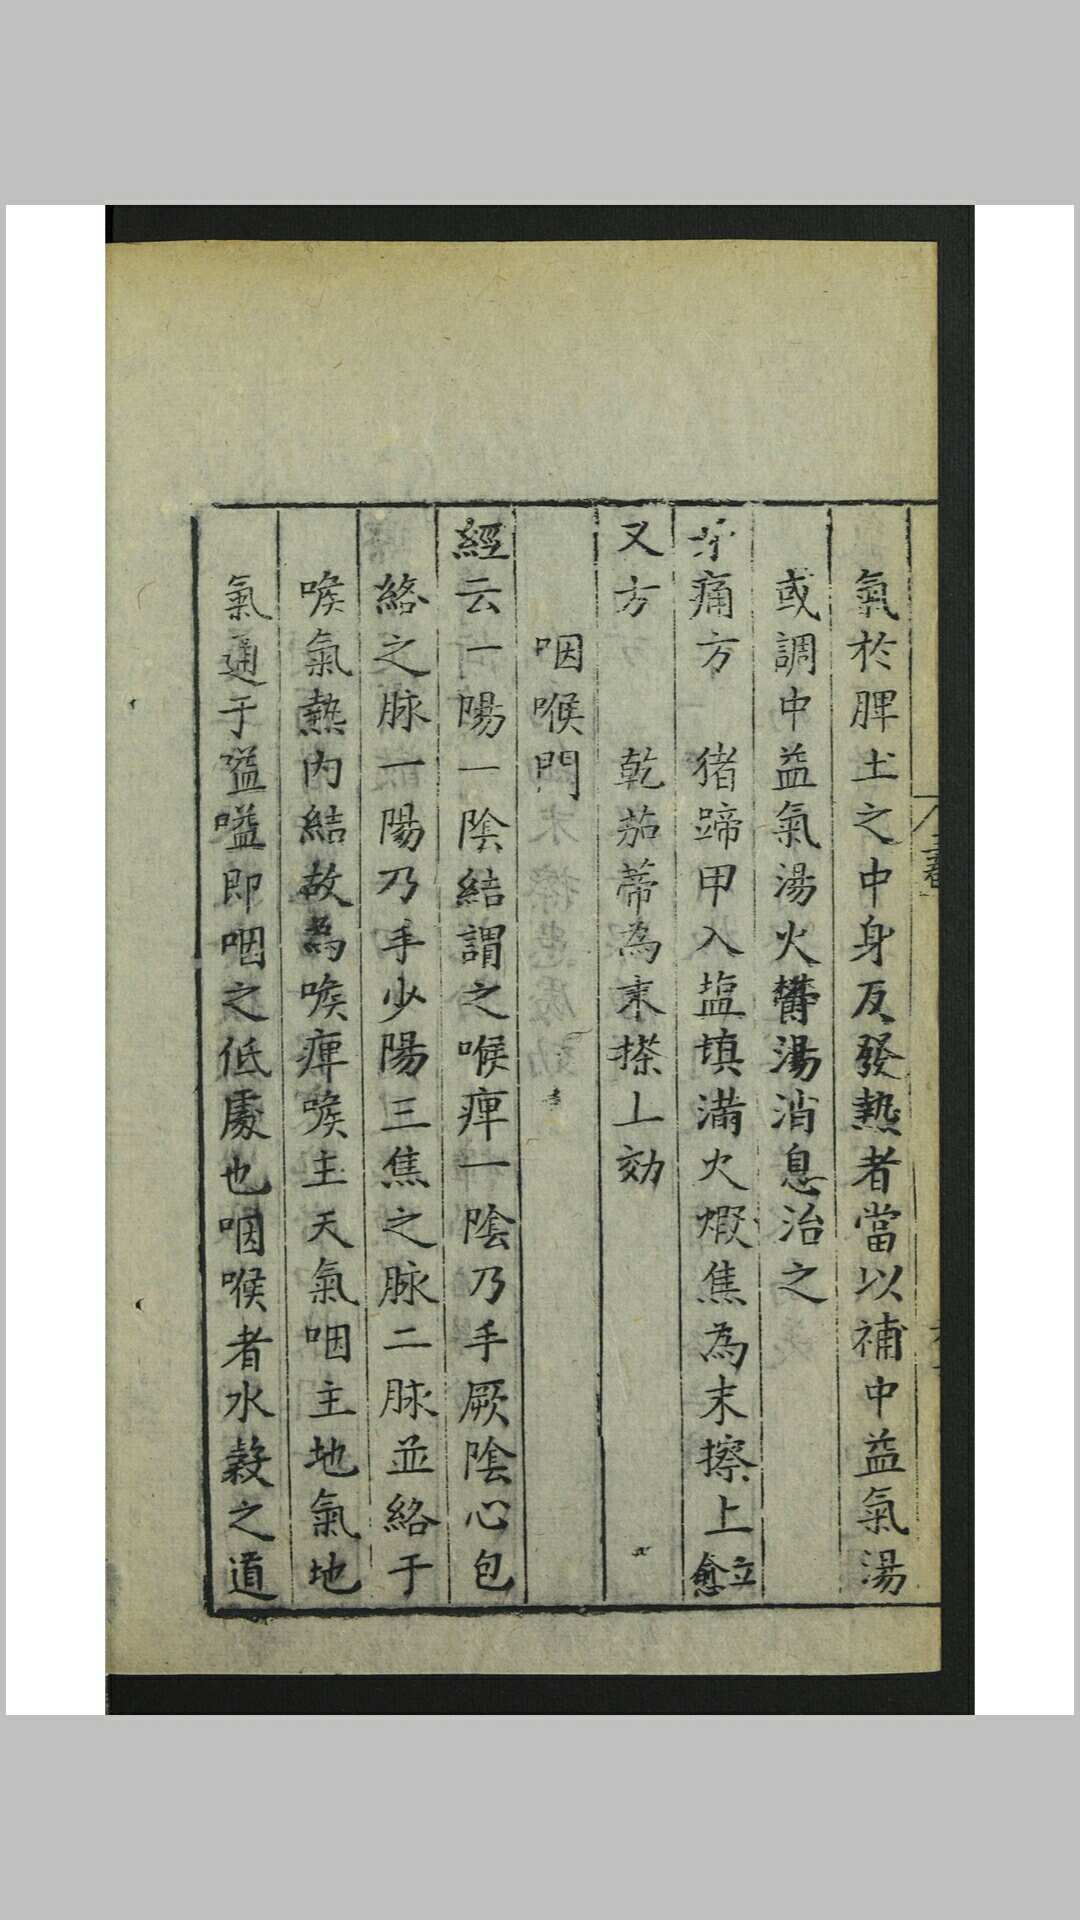 氣於脾土之中身反發熱者當以補中益氣湯
或調中益氣湯火鬱湯消息治之
牙痛方　猪蹄甲入塩填滿火煆焦為末擦上立愈
又方　乾茄蒂為末搽上効
咽喉門
經云一陽一陰結謂之喉痺一陰乃手厥陰心包
絡之脉一陽乃手少陽三焦之脉二脉並絡于
喉氣熱内結故為喉痺喉主天氣咽主地氣地
氣通于嗌嗌即咽之低處也咽喉者水穀之道